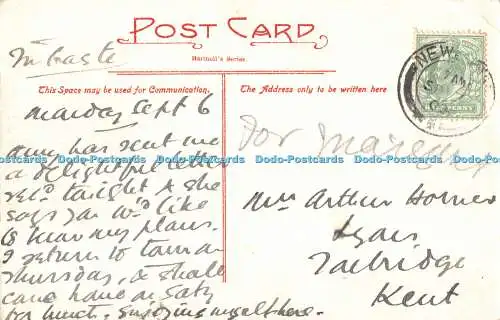 In haste
POST CARD.
Hartnoll's Series
This Space may be used for Communication.
The Address only to be written here
NEW
PENNY
Monday Sept 6
Amy has sent me
a delightful letter
rec'd tonight & she
says you wd like
to know my plans.
I return to town on
Thursday, & shall
come home on Satdy
for lunch. Enjoying myself here.
For
Mrs Arthur Horner
Tonbridge
Kent
Dodo-Postcards Dodo-Postcards Dodo-Postcards Dodo-Postcards Dodo-Postcards Dodo-Postcards